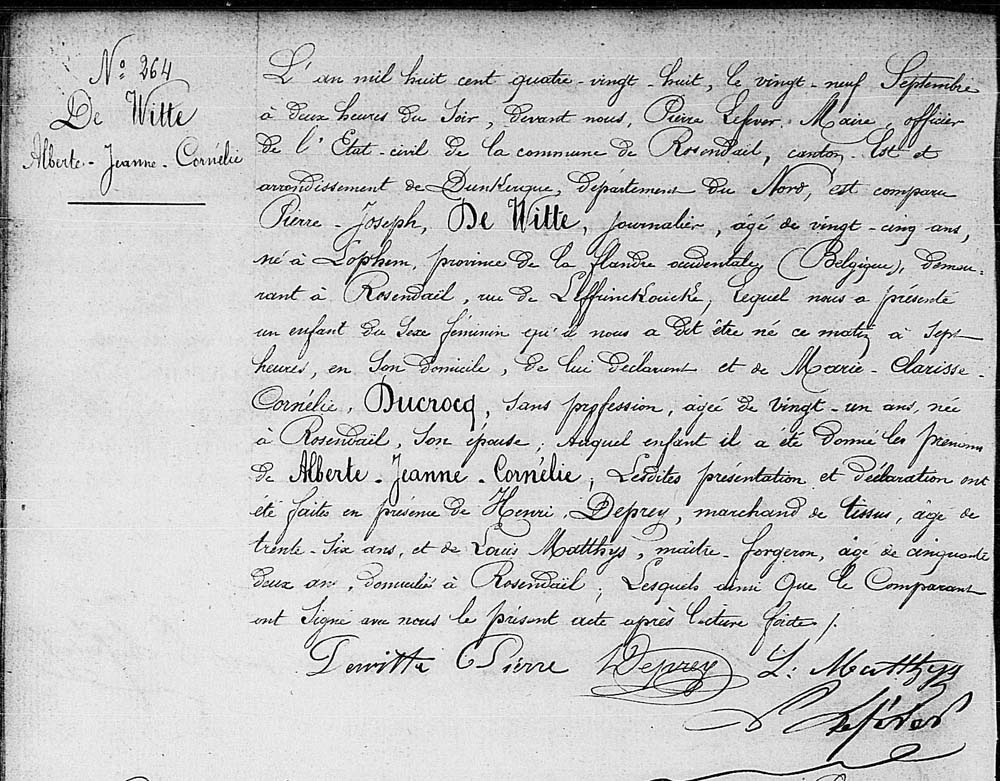 N° 264
De Witte
Alberte - Jeanne - Cornélie
L'an mil huit cent quatre-vingt-huit, le vingt-neuf Septembre
à deux heures du Soir, devant nous, Pierre Lefever, Maire, officier
de l'Etat-civil de la commune de Rosendaël, canton Est et
arrondissement de Dunkerque, département du Nord, est comparu
Pierre-Joseph, De Witte, journalier, âgé de vingt-cinq ans,
né à Lophem, province de la flandre occidentale, (Belgique), demeu-
rant à Rosendaël, rue de Leffrinckoucke, lequel nous a présenté
un enfant du Sexe féminin qu'il nous a dit être né ce matin à Sept
heures, en Son domicile, de lui déclarant et de Marie-Clarisse-
Cornélie, Ducrocq, Sans profession, agée de vingt-un ans, née
à Rosendaël, Son épouse; Auquel enfant il a été donné les prénoms
de Alberte - Jeanne - Cornélie; Lesdites présentation et déclaration ont
été faites en présence de Henri Deprey, marchand de tissus, âgé de
trente-Six ans, et de Louis Matthys, maître-forgeron, âgé de cinquante
deux ans, domiciliés à Rosendaël; Lesquels ainsi Que le Comparant
ont Signé avec nous le présent acte après lecture faite /.
Dewitte Pierre HDeprey L. Matthys
P Lefever